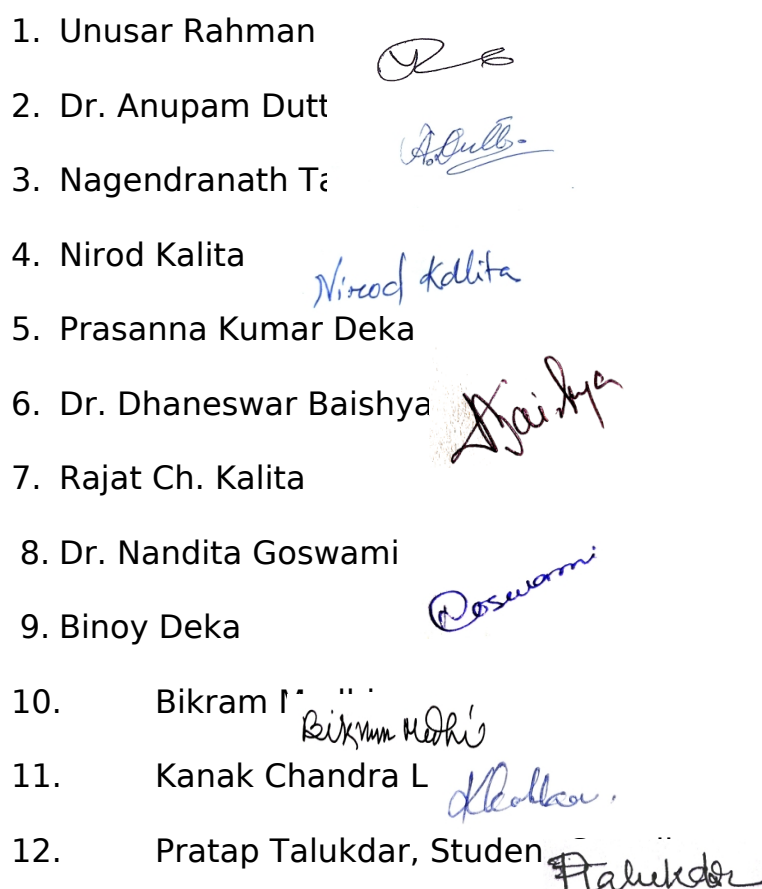 1. Unusar Rahman
2. Dr. Anupam Dutt
A. Dutta.
3. Nagendranath Ta
4. Nirod Kalita
Nirod Kallita
5. Prasanna Kumar Deka
6. Dr. Dhaneswar Baishya
Baishya
7. Rajat Ch. Kalita
8. Dr. Nandita Goswami
Goswami
9. Binoy Deka
10. Bikram
Bikram Medhi
11. Kanak Chandra L
12. Pratap Talukdar, Studen
PTalukdar